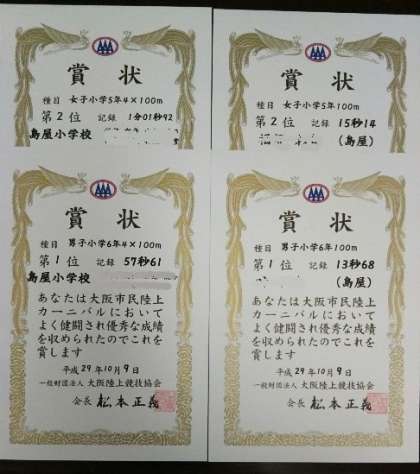 賞状
種目 女子小学5年4×100m
第2位 記録 1分01秒92
島屋小学校
賞状
種目 女子小学5年100m
第2位 記録 15秒14
(島屋)
賞状
種目 男子小学6年4×100m
第1位 記録 57秒61
島屋小学校
あなたは大阪市民陸上
カーニバルにおいて
よく健闘され優秀な成績
を収められたのでこれを
賞します
平成29年10月9日
一般財団法人 大阪陸上競技協会
会長 松本正義
賞状
種目 男子小学6年100m
第1位 記録 13秒68
(島屋)
あなたは大阪市民陸上
カーニバルにおいて
よく健闘され優秀な成績
を収められたのでこれを
賞します
平成29年10月9日
一般財団法人 大阪陸上競技協会
会長 松本正義